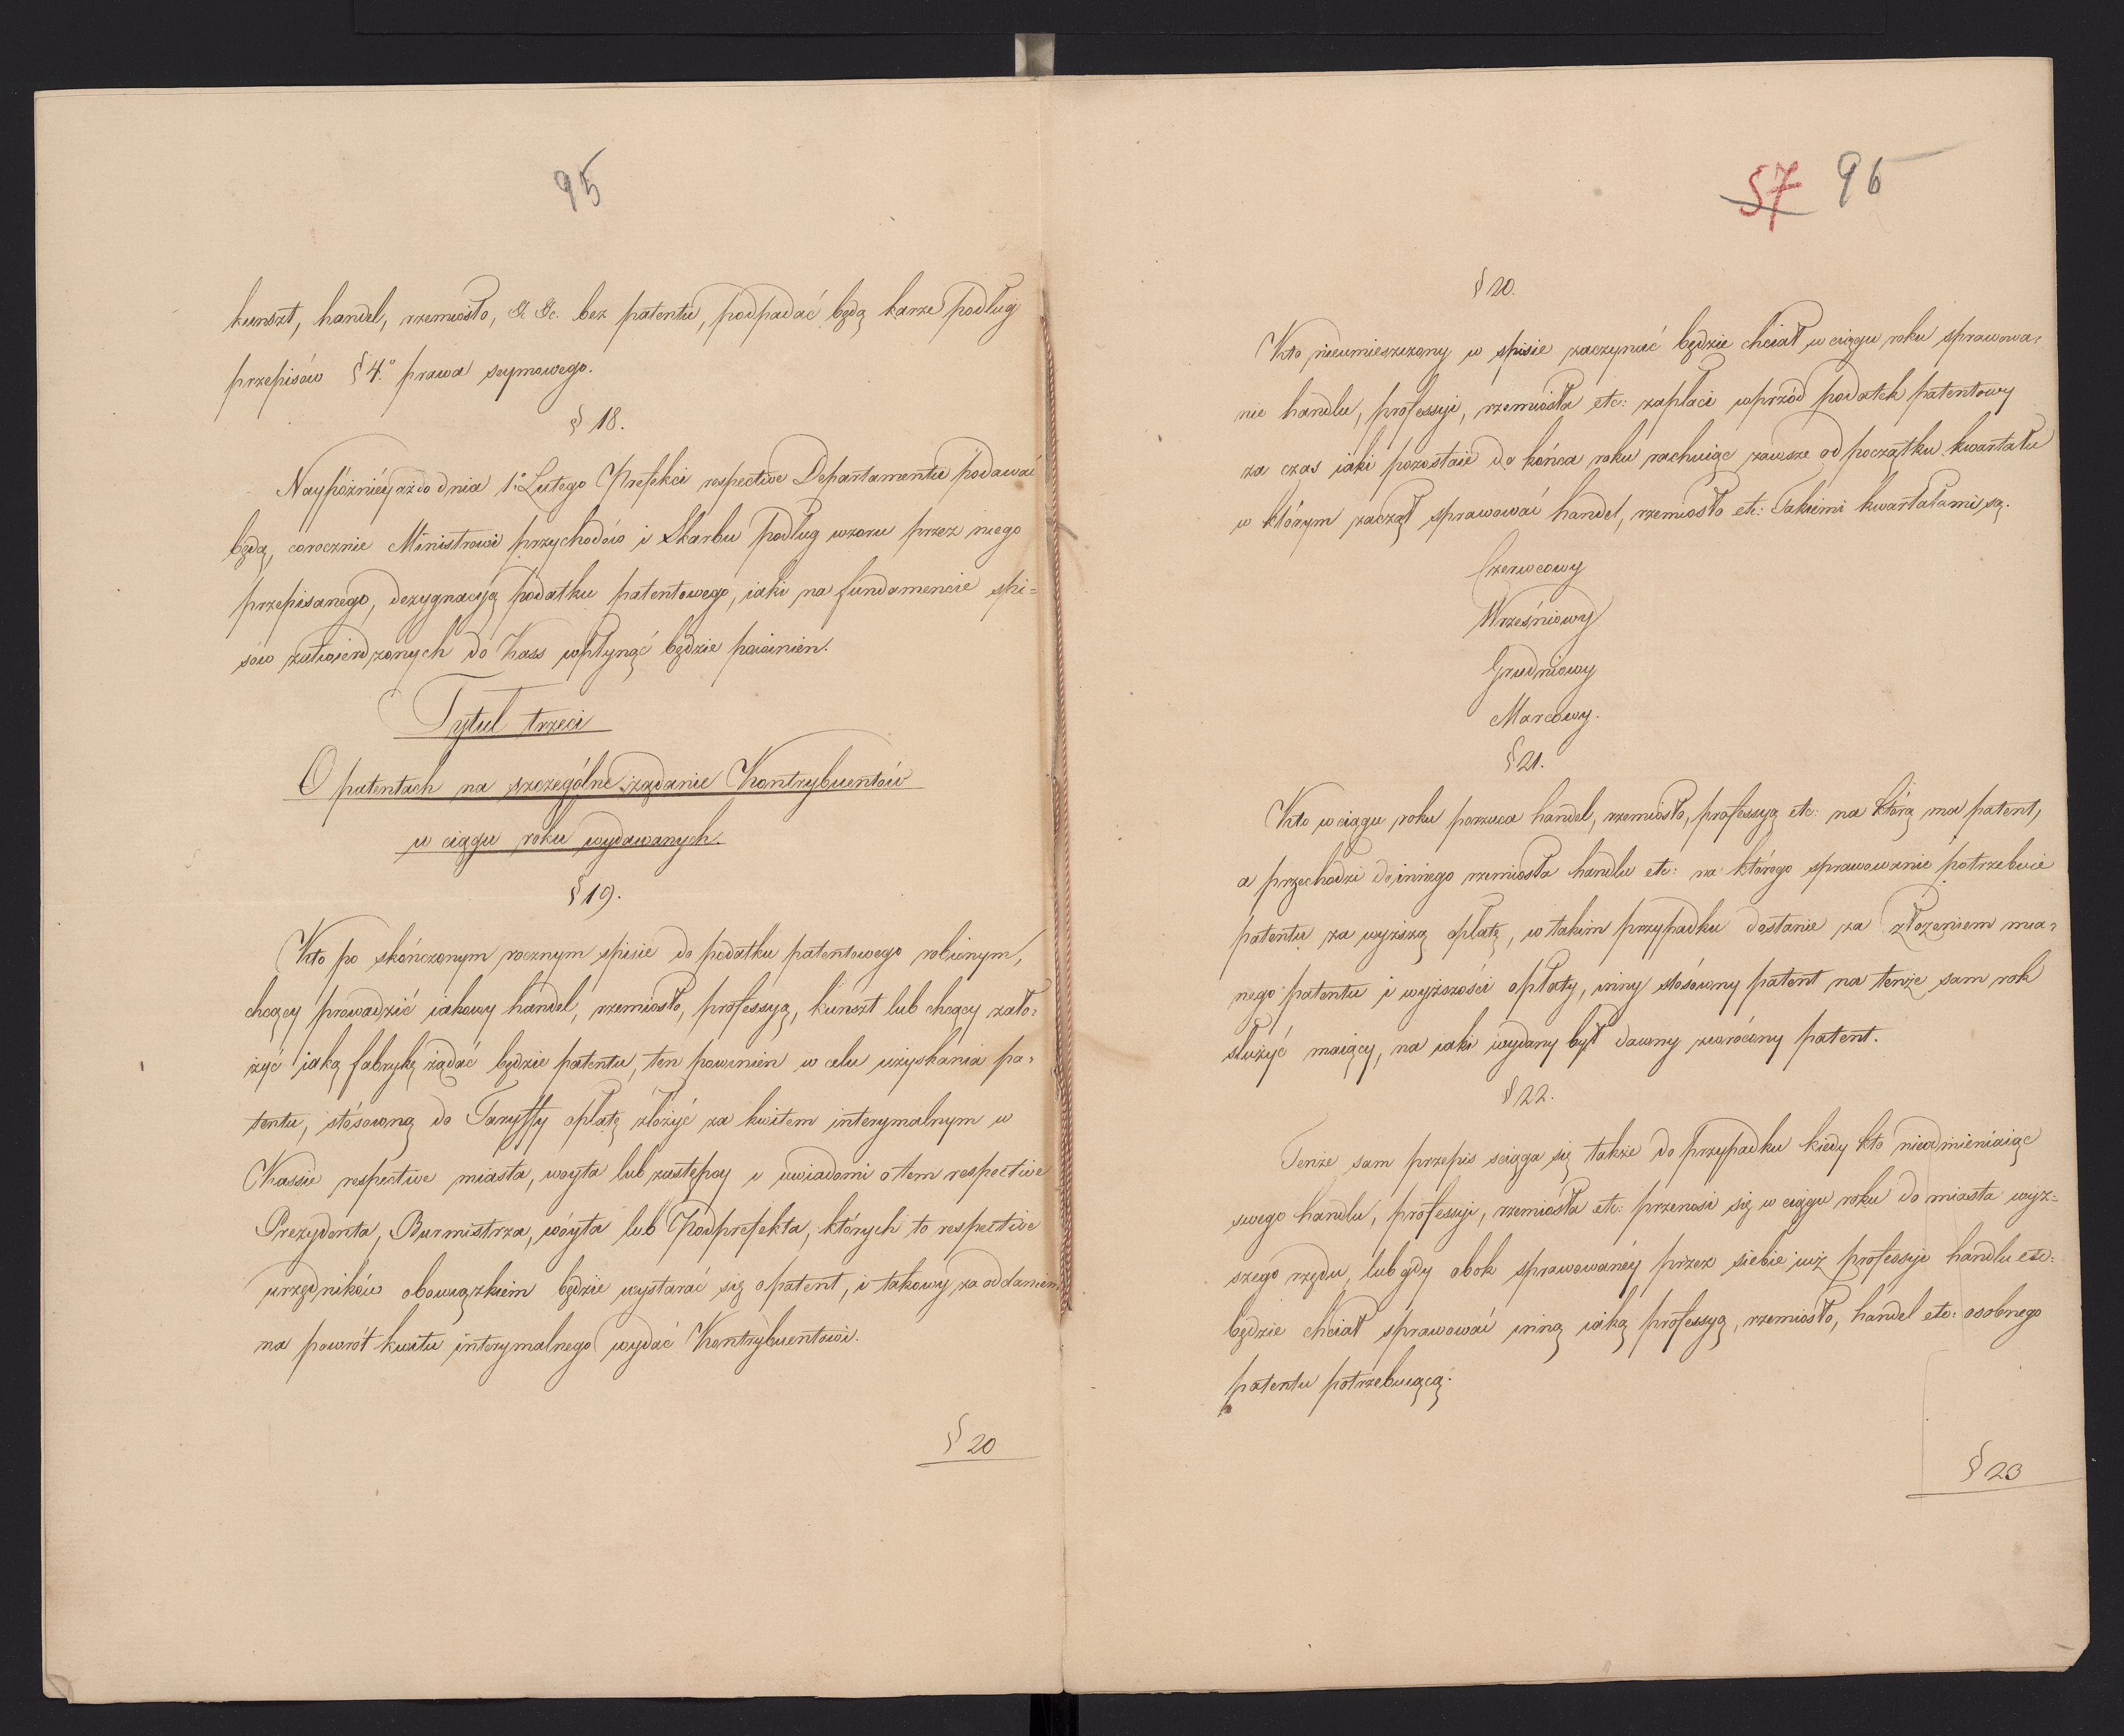 95
kunszt, handel, rzemiosło, &. &c. bez patentu, podpadać będą karze podług
przepisów § 4.º prawa seymowego.
§ 18.
Naypóźniéy aż do dnia 1º Lutego Prefekci respective Departamentu podawać
będą, corocznie Ministrowi przychodów i Skarbu podług wzoru przez niego
przepisanego, dezygnacyją podatku patentowego, iaki na fundamencie spi=
sów zatwierdzonych do Kass wpłynąć będzie powinien.
Tytuł trzeci
O patentach na szczególne żądanie Kontrybuentów
w ciągu roku wydawanych.
§ 19.
Kto po skończonym rocznym spisie do podatku patentowego robionym,
chcący prowadzić iakowy handel, rzemiosło, professyą, kunszt lub chcący zało=
żyć iaką fabrykę żądać będzie patentu, ten powinien w celu uzyskania pa=
tentu, stósowną do Taryffy opłatę złożyć za kwitem interymalnym w
Kassie respective miasta, woyta lub zastępcy i uwiadomi o tem respective
Prezydenta, Burmistrza, wóyta lub Podprefekta, których to respective
urzędników obowiązkiem będzie wystarać się o patent, i takowy za oddaniem
na powrót kwitu interymalnego wydać Kontrybuentowi.
§ 20
57 96
§ 20.
Kto nieumieszczony w spisie zaczynać będzie chciał w ciągu roku sprawowa=
nie handlu, professyi, rzemiosła etc: zapłaci wprzód podatek patentowy
za czas iaki pozostaie do końca roku rachuiąc zawsze od początku kwartału
w którym zaczął sprawować handel, rzemiosło etc: Takiemi kwartałami są.
Czerwcowy
Wrześniowy
Grudniowy
Marcowy.
§ 21.
Kto w ciągu roku porzuca handel, rzemiosło, professyą etc: na którą ma patent,
a przechodzi do innego rzemiosła handlu etc: na którego sprawowanie potrzebuie
patentu za wyższą opłatę, w takim przypadku dostanie za złożeniem mia=
nego patentu i wyższości opłaty, inny stósowny patent na tenże sam rok
służyć maiący, na iaki wydany był dawny zwrócony patent.
§ 22.
Tenże sam przepis sciąga się także do przypadku kiedy kto nieodmieniaiąc
swego handlu, professyi, rzemiosła etc: przenosi się w ciągu roku do miasta wyż=
szego rzędu, lub gdy obok sprawowanéy przez siebie iuż professyi handlu etc:
będzie chciał sprawować inną iaką professyą, rzemiosło, handel etc: osobnego
patentu potrzebuiącą.
§ 23